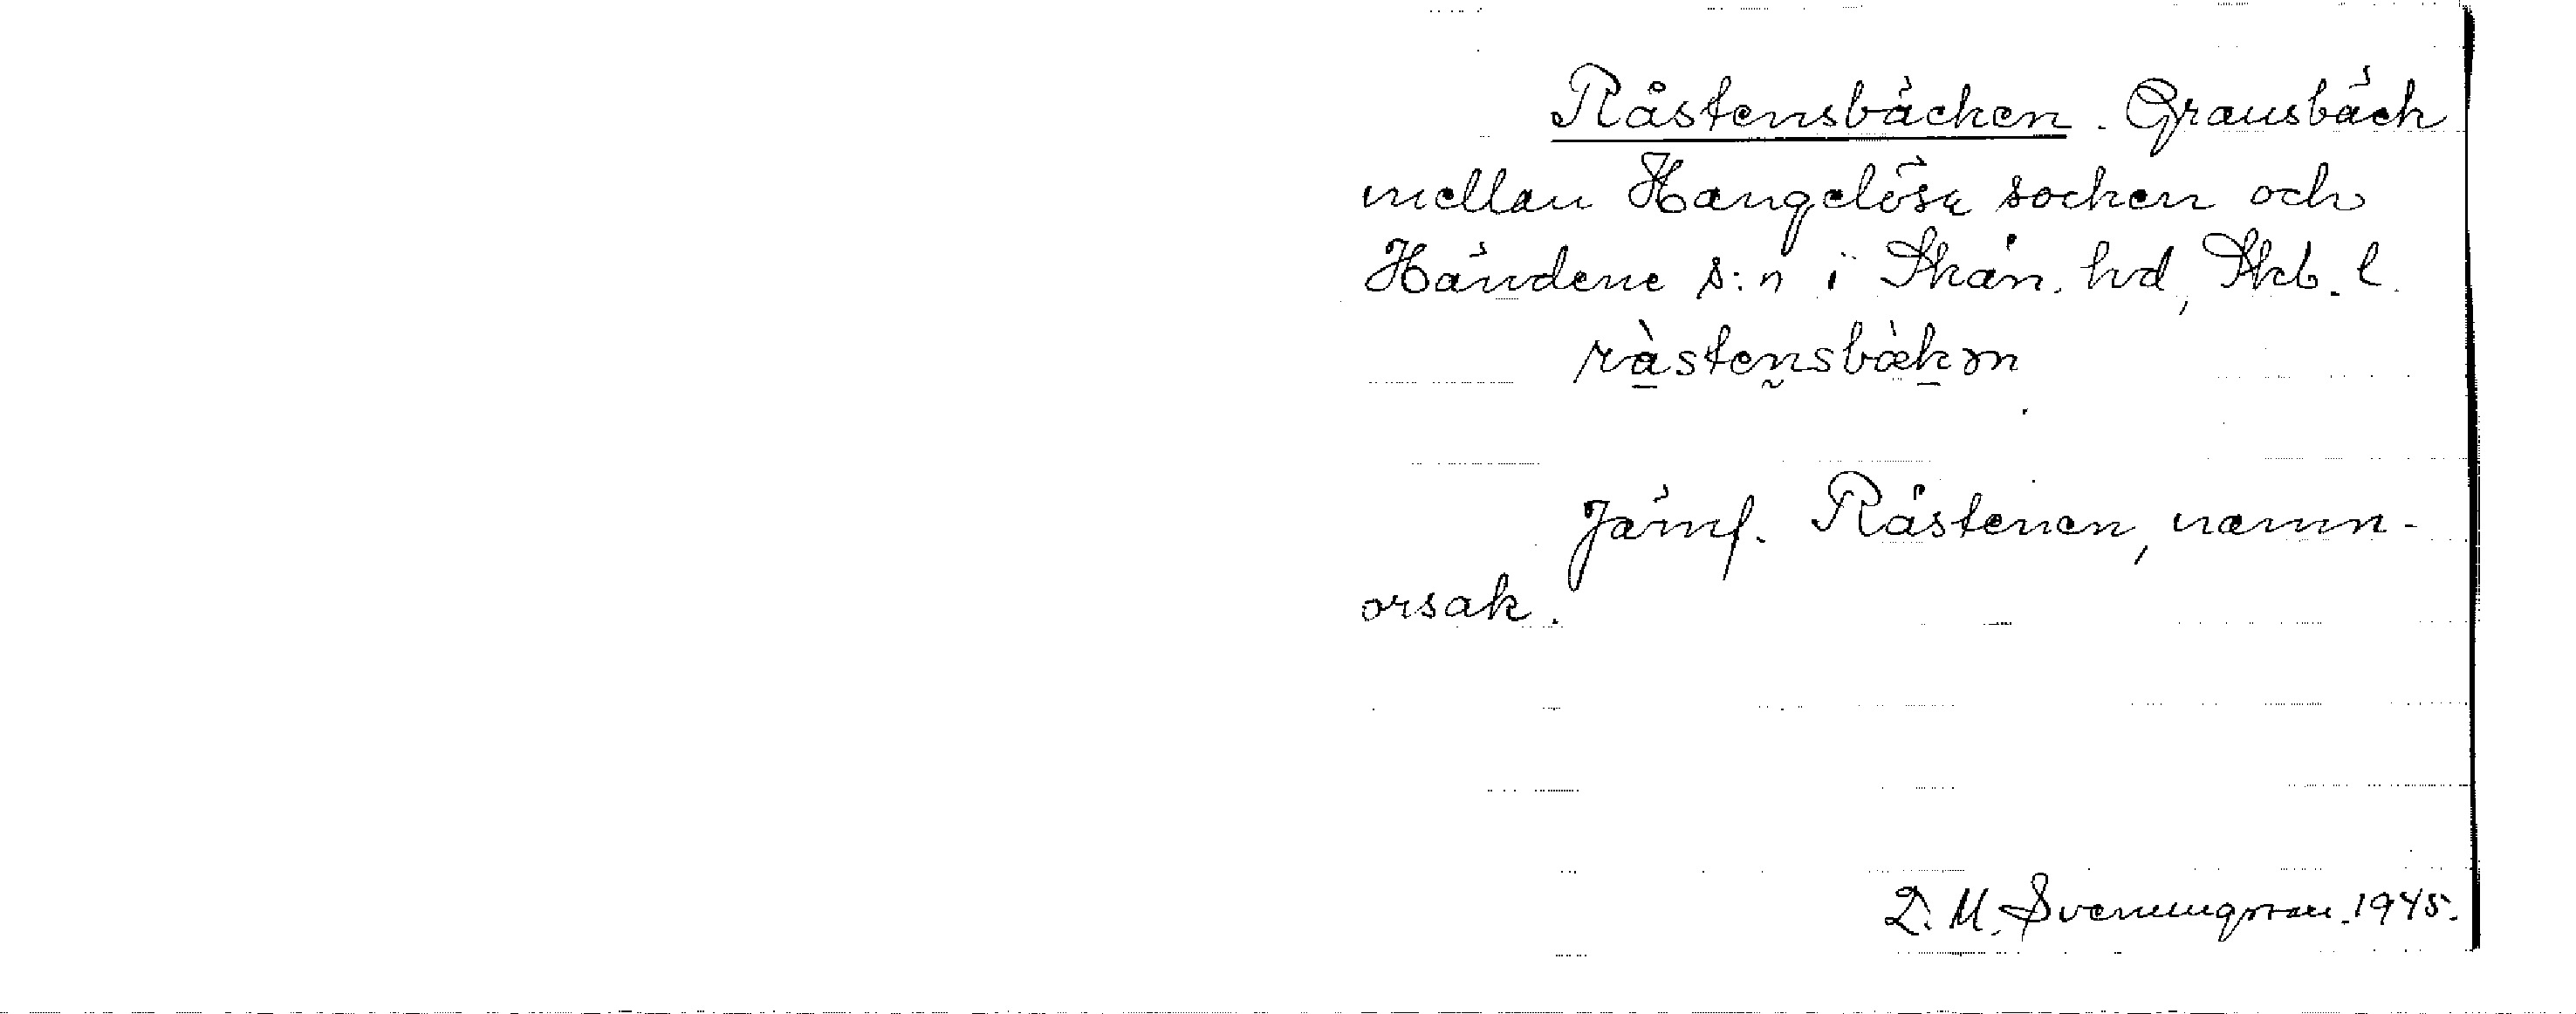 Råstensbäcken. Gränsbäck
mellan Hangelösa socken och
Händene s:n i Skån. hd, Skb. l.
råstensbäkən
Jämf. Råstenen, namn-
orsak.
D. M. Svenungsson. 1945.